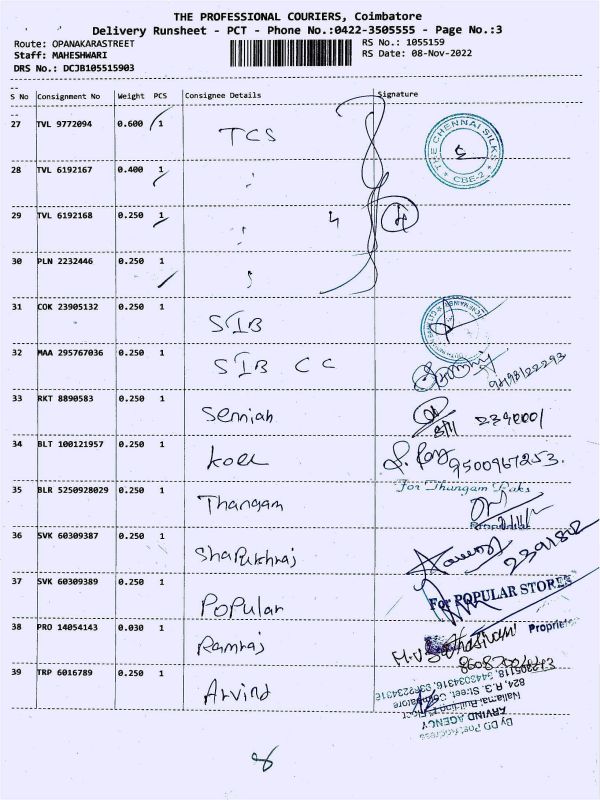 THE PROFESSIONAL COURIERS, Coimbatore
Delivery Runsheet - PCT - Phone No.:0422-3505555 - Page No.:3
Route: OPANAKARASTREET RS No.: 1055159
Staff: MAHESHWARI RS Date: 08-Nov-2022
DRS No.: DCJB105515903
S No Consignment No Weight PCS Consignee Details Signature
27 TVL 9772094 0.600 1 TCS
THE CHENNAI SILKS
CBE-2
28 TVL 6192167 0.400 1
29 TVL 6192168 0.250 1 4
30 PLN 2232446 0.250 1
31 COK 23905132 0.250 1 SIB
32 MAA 295767036 0.250 1 SIB CC
33 RKT 8890583 0.250 1 Senniah
34 BLT 100121957 0.250 1 koel 9500967253.
For Thangam Raks
35 BLR 5250928029 0.250 1 Thangam
36 SVK 60309387 0.250 1 Sharukhraj
37 SVK 60309389 0.250 1 Popular
For POPULAR STORES
Proprietor
38 PRO 14054143 0.030 1 Ramraj
39 TRP 6016789 0.250 1 Arvind
ARVIND AGENCY
824, R.G. Street, Coimbatore
8